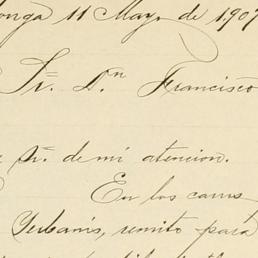 onga 11 Mayo de 1907
Sr. Dn Francisco
e Sr. de mi atencion.
En los carros
Yurbanis, remito para